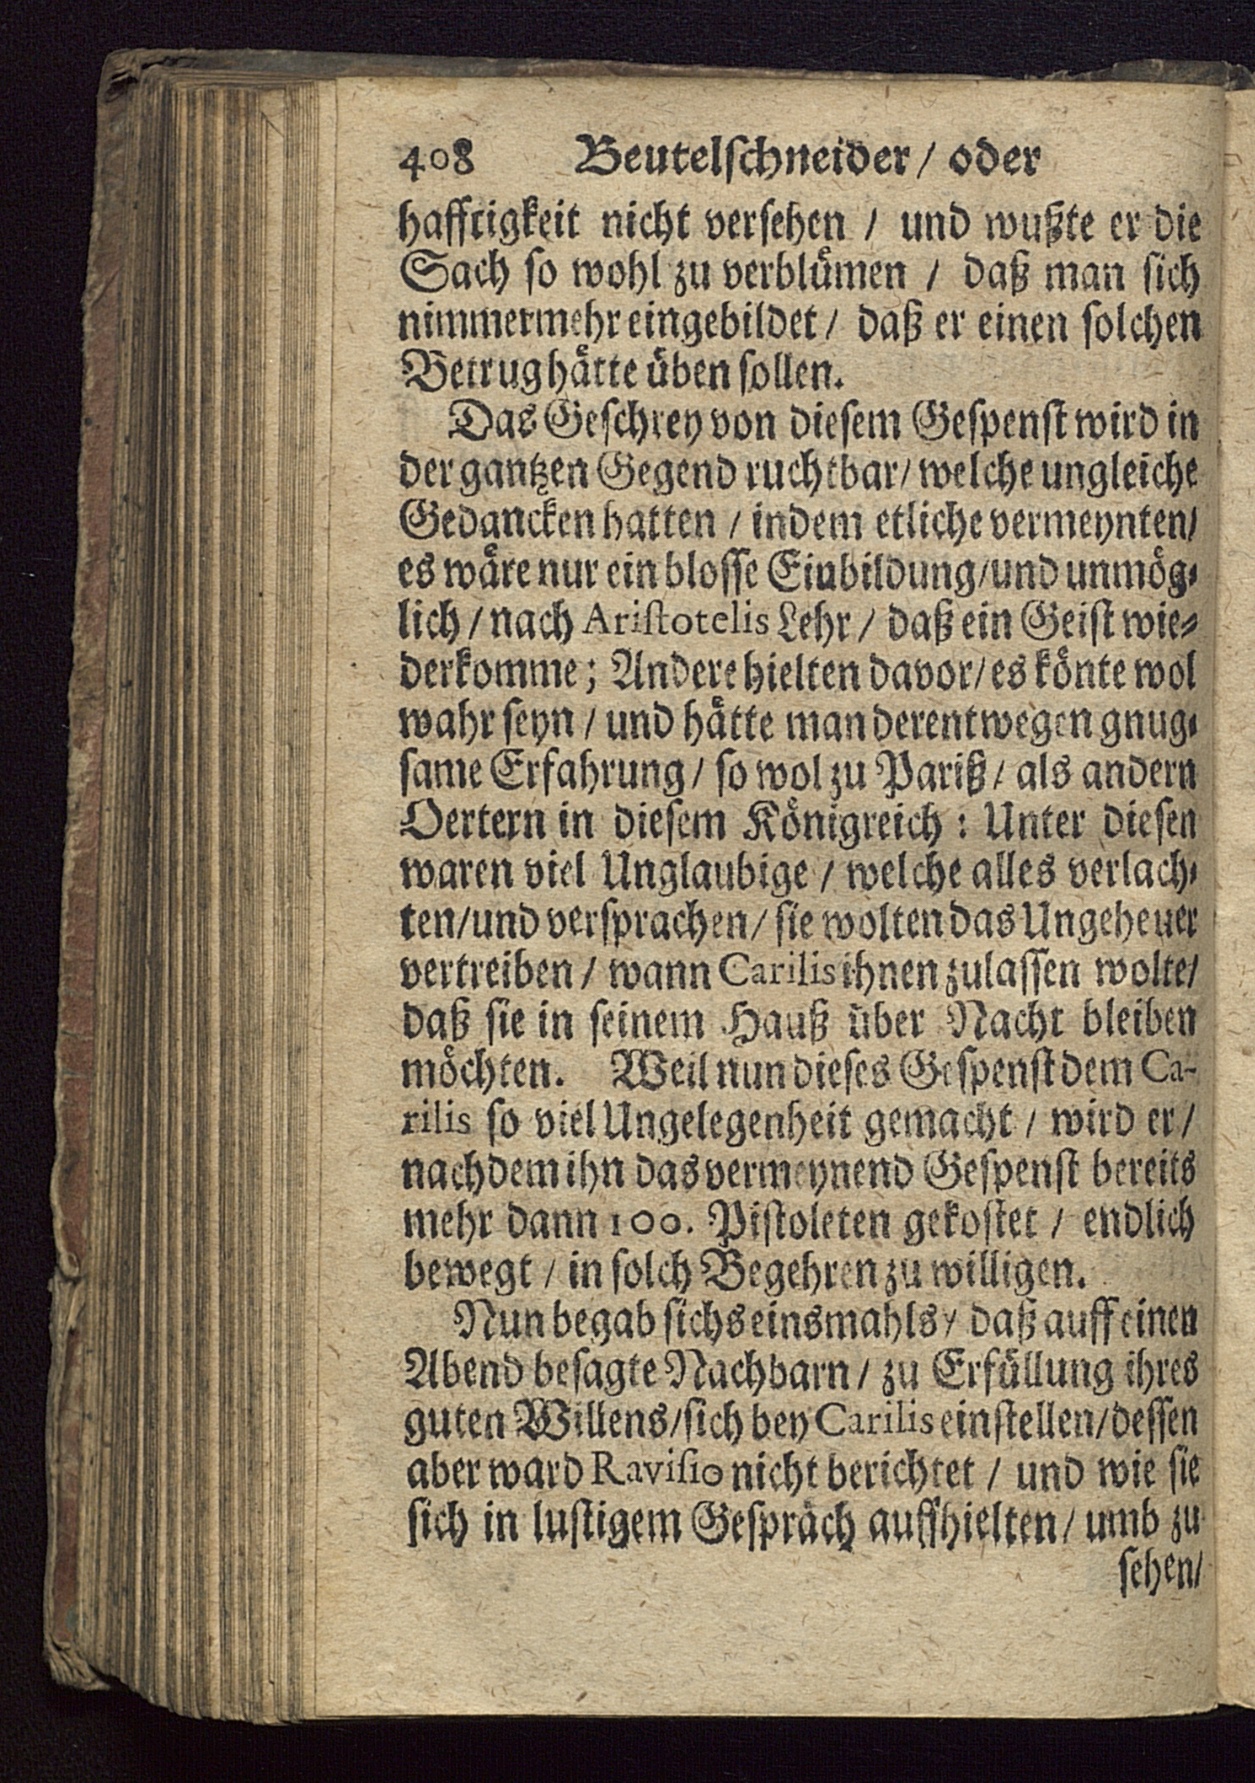 408 Beutelschneider / oder
hafftigkeit nicht versehen / und wußte er die
Sach so wohl zu verblümen / daß man sich
nimmermehr eingebildet / daß er einen solchen
Betrug hätte üben sollen.
Das Geschrey von diesem Gespenst wird in
der gantzen Gegend ruchtbar / welche ungleiche
Gedancken hatten / indem etliche vermeynten /
es wäre nur ein blosse Einbildung / und unmög-
lich / nach Aristotelis Lehr / daß ein Geist wie-
derkomme; Andere hielten davor / es könte wol
wahr seyn / und hätte man derentwegen gnug-
same Erfahrung / so wol zu Pariß / als andern
Oertern in diesem Königreich : Unter diesen
waren viel Unglaubige / welche alles verlach-
ten / und versprachen / sie wolten das Ungeheuer
vertreiben / wann Carilis ihnen zulassen wolte /
daß sie in seinem Hauß über Nacht bleiben
möchten. Weil nun dieses Gespenst dem Ca-
rilis so viel Ungelegenheit gemacht / wird er /
nachdem ihn das vermeynend Gespenst bereits
mehr dann 100. Pistoleten gekostet / endlich
bewegt / in solch Begehren zu willigen.
Nun begab sichs einsmahls / daß auff einen
Abend besagte Nachbarn / zu Erfüllung ihres
guten Willens / sich bey Carilis einstellen / dessen
aber ward Ravisio nicht berichtet / und wie sie
sich in lustigem Gespräch auffhielten / umb zu
sehen /